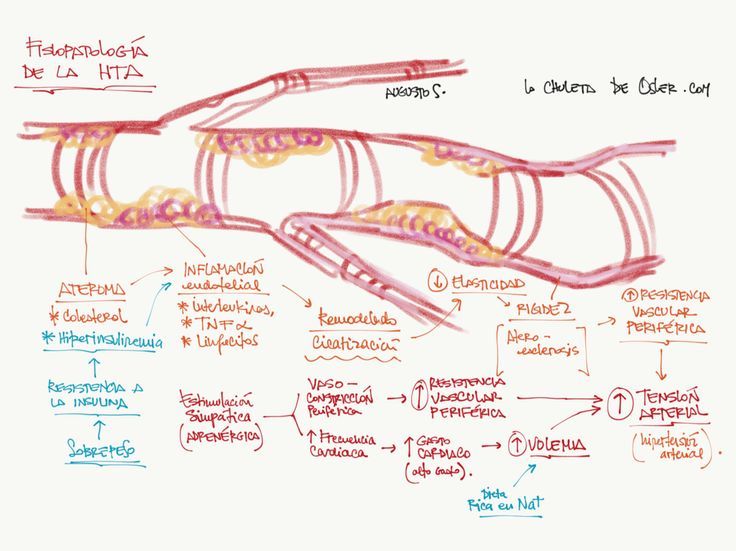 FISIOPATOLOGÍA
DE LA HTA
AUGUSTO S.
LA CHULETA DE OSLER.COM
ATEROMA
* Colesterol
* Hiperinsulinemia
RESISTENCIA A
LA INSULINA
SOBREPESO
INFLAMACIÓN
endotelial
* Interleukinas,
* TNF α
* Linfocitos
Remodelado
Cicatrización
↓ ELASTICIDAD
RIGIDEZ
[Atero-
esclerosis]
↑ RESISTENCIA
VASCULAR
PERIFÉRICA
Estimulación
Simpática
(ADRENÉRGICA)
VASO-
CONSTRICCIÓN
Periférica
↑ RESISTENCIA
VASCULAR
PERIFÉRICA
↑ Frecuencia
Cardiaca
↑ GASTO
CARDIACO
(alto Gasto).
↑ VOLEMIA
Dieta
Rica en Na+
↑ TENSIÓN
ARTERIAL
(hipertensión
arterial).